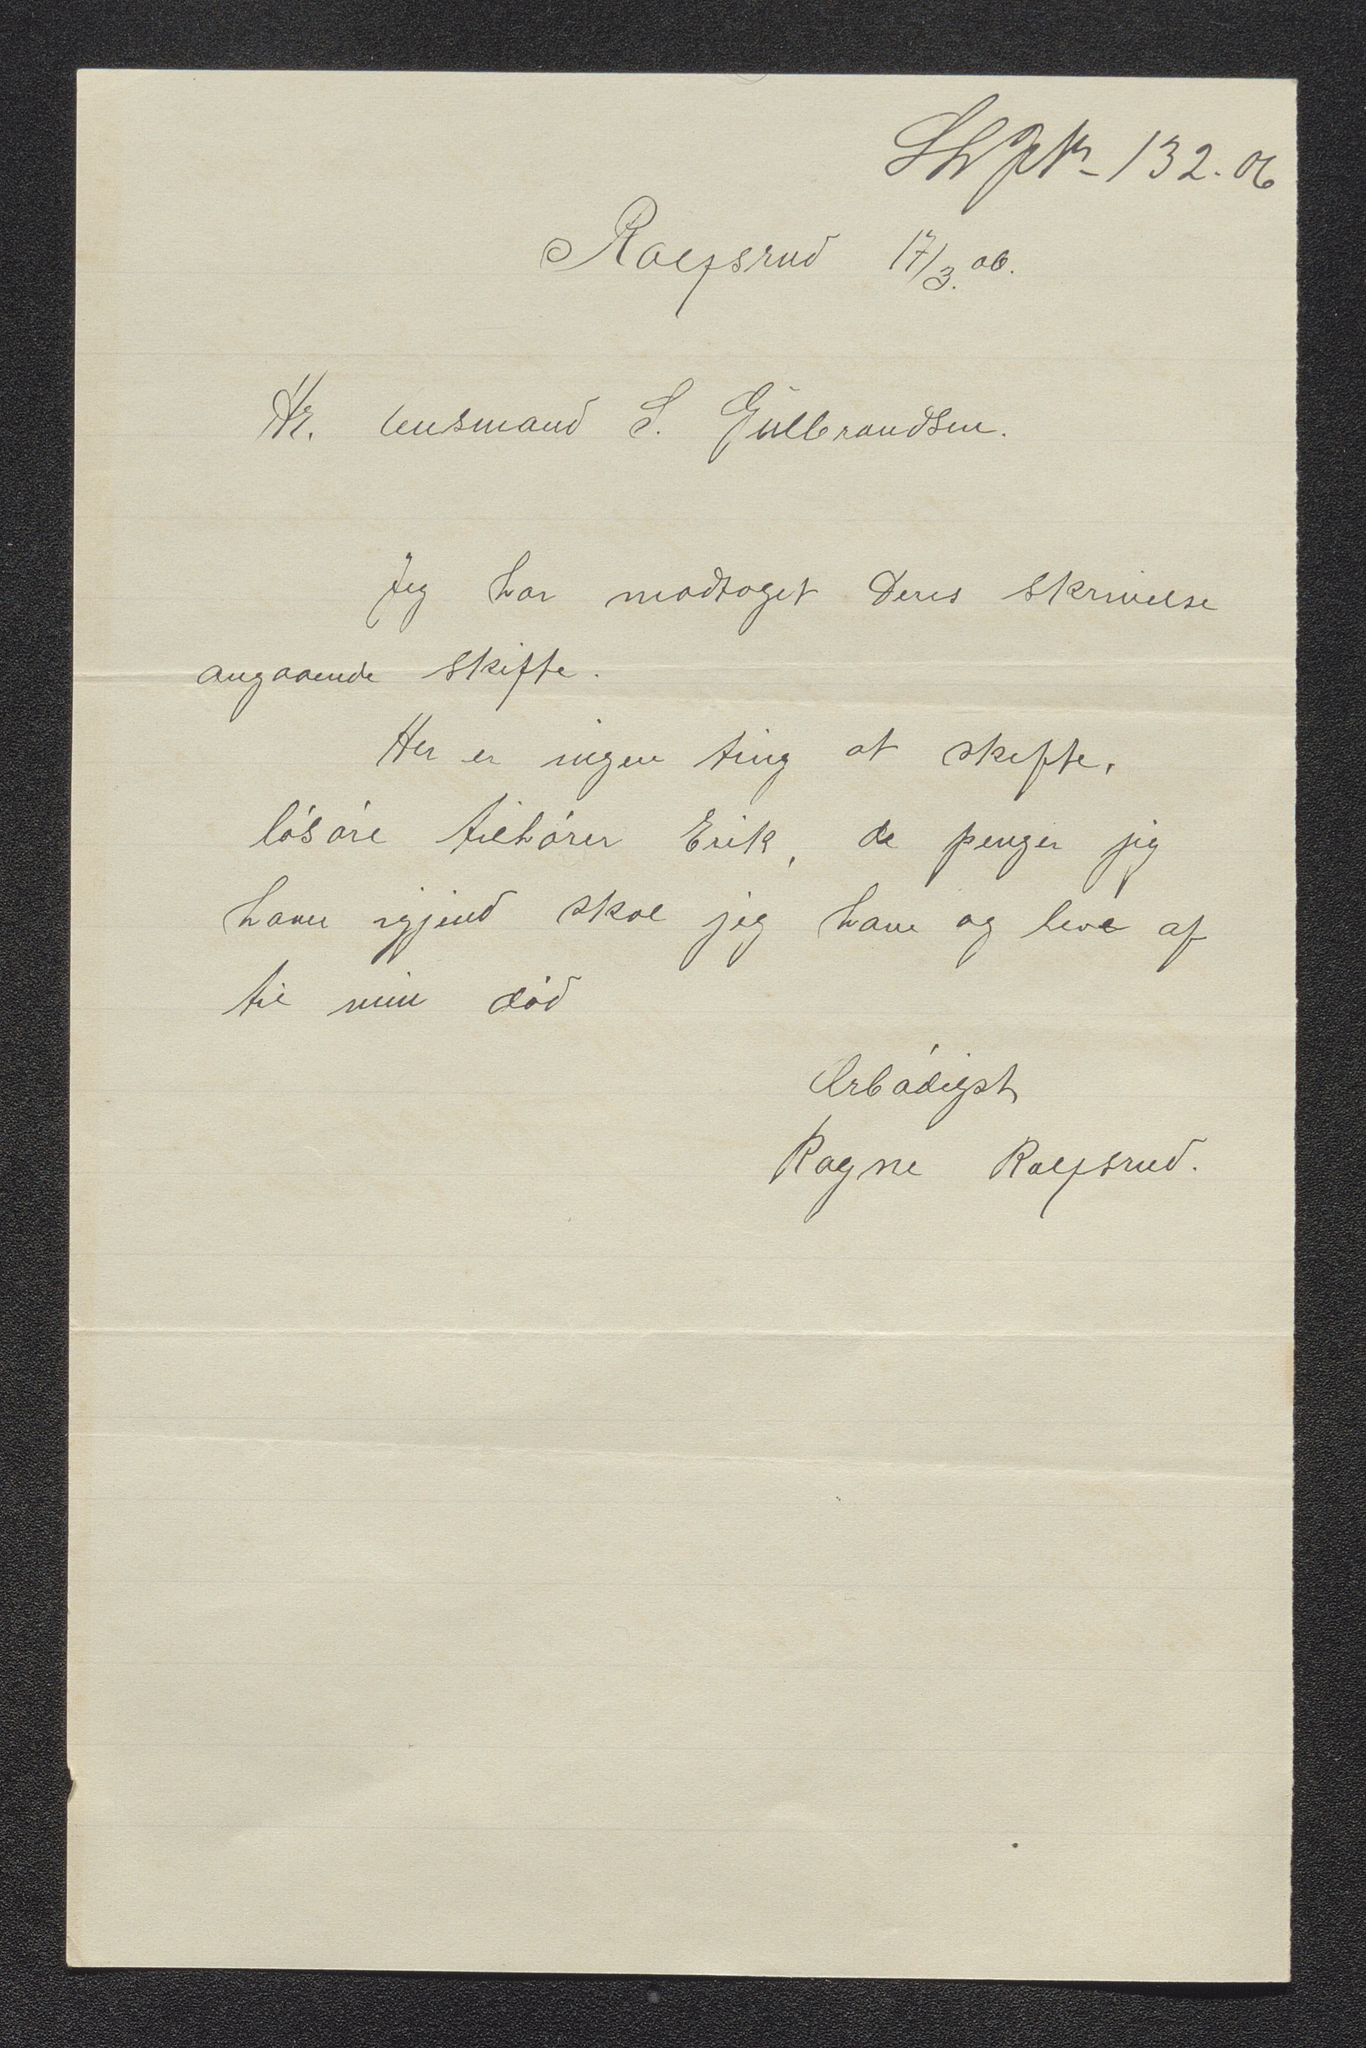 132.06
Rolfsrud 17/3.06.
Hr. lensmand S. Gulbrandsen.
Jeg har modtaget Deres skrivelse
angaaende skifte.
Her er ingen ting at skifte,
lösöre tilhörer Erik, de penger jeg
haver igjend skal jeg have og leve af
til min död
Ærbödigst
Ragne Rolfsrud.